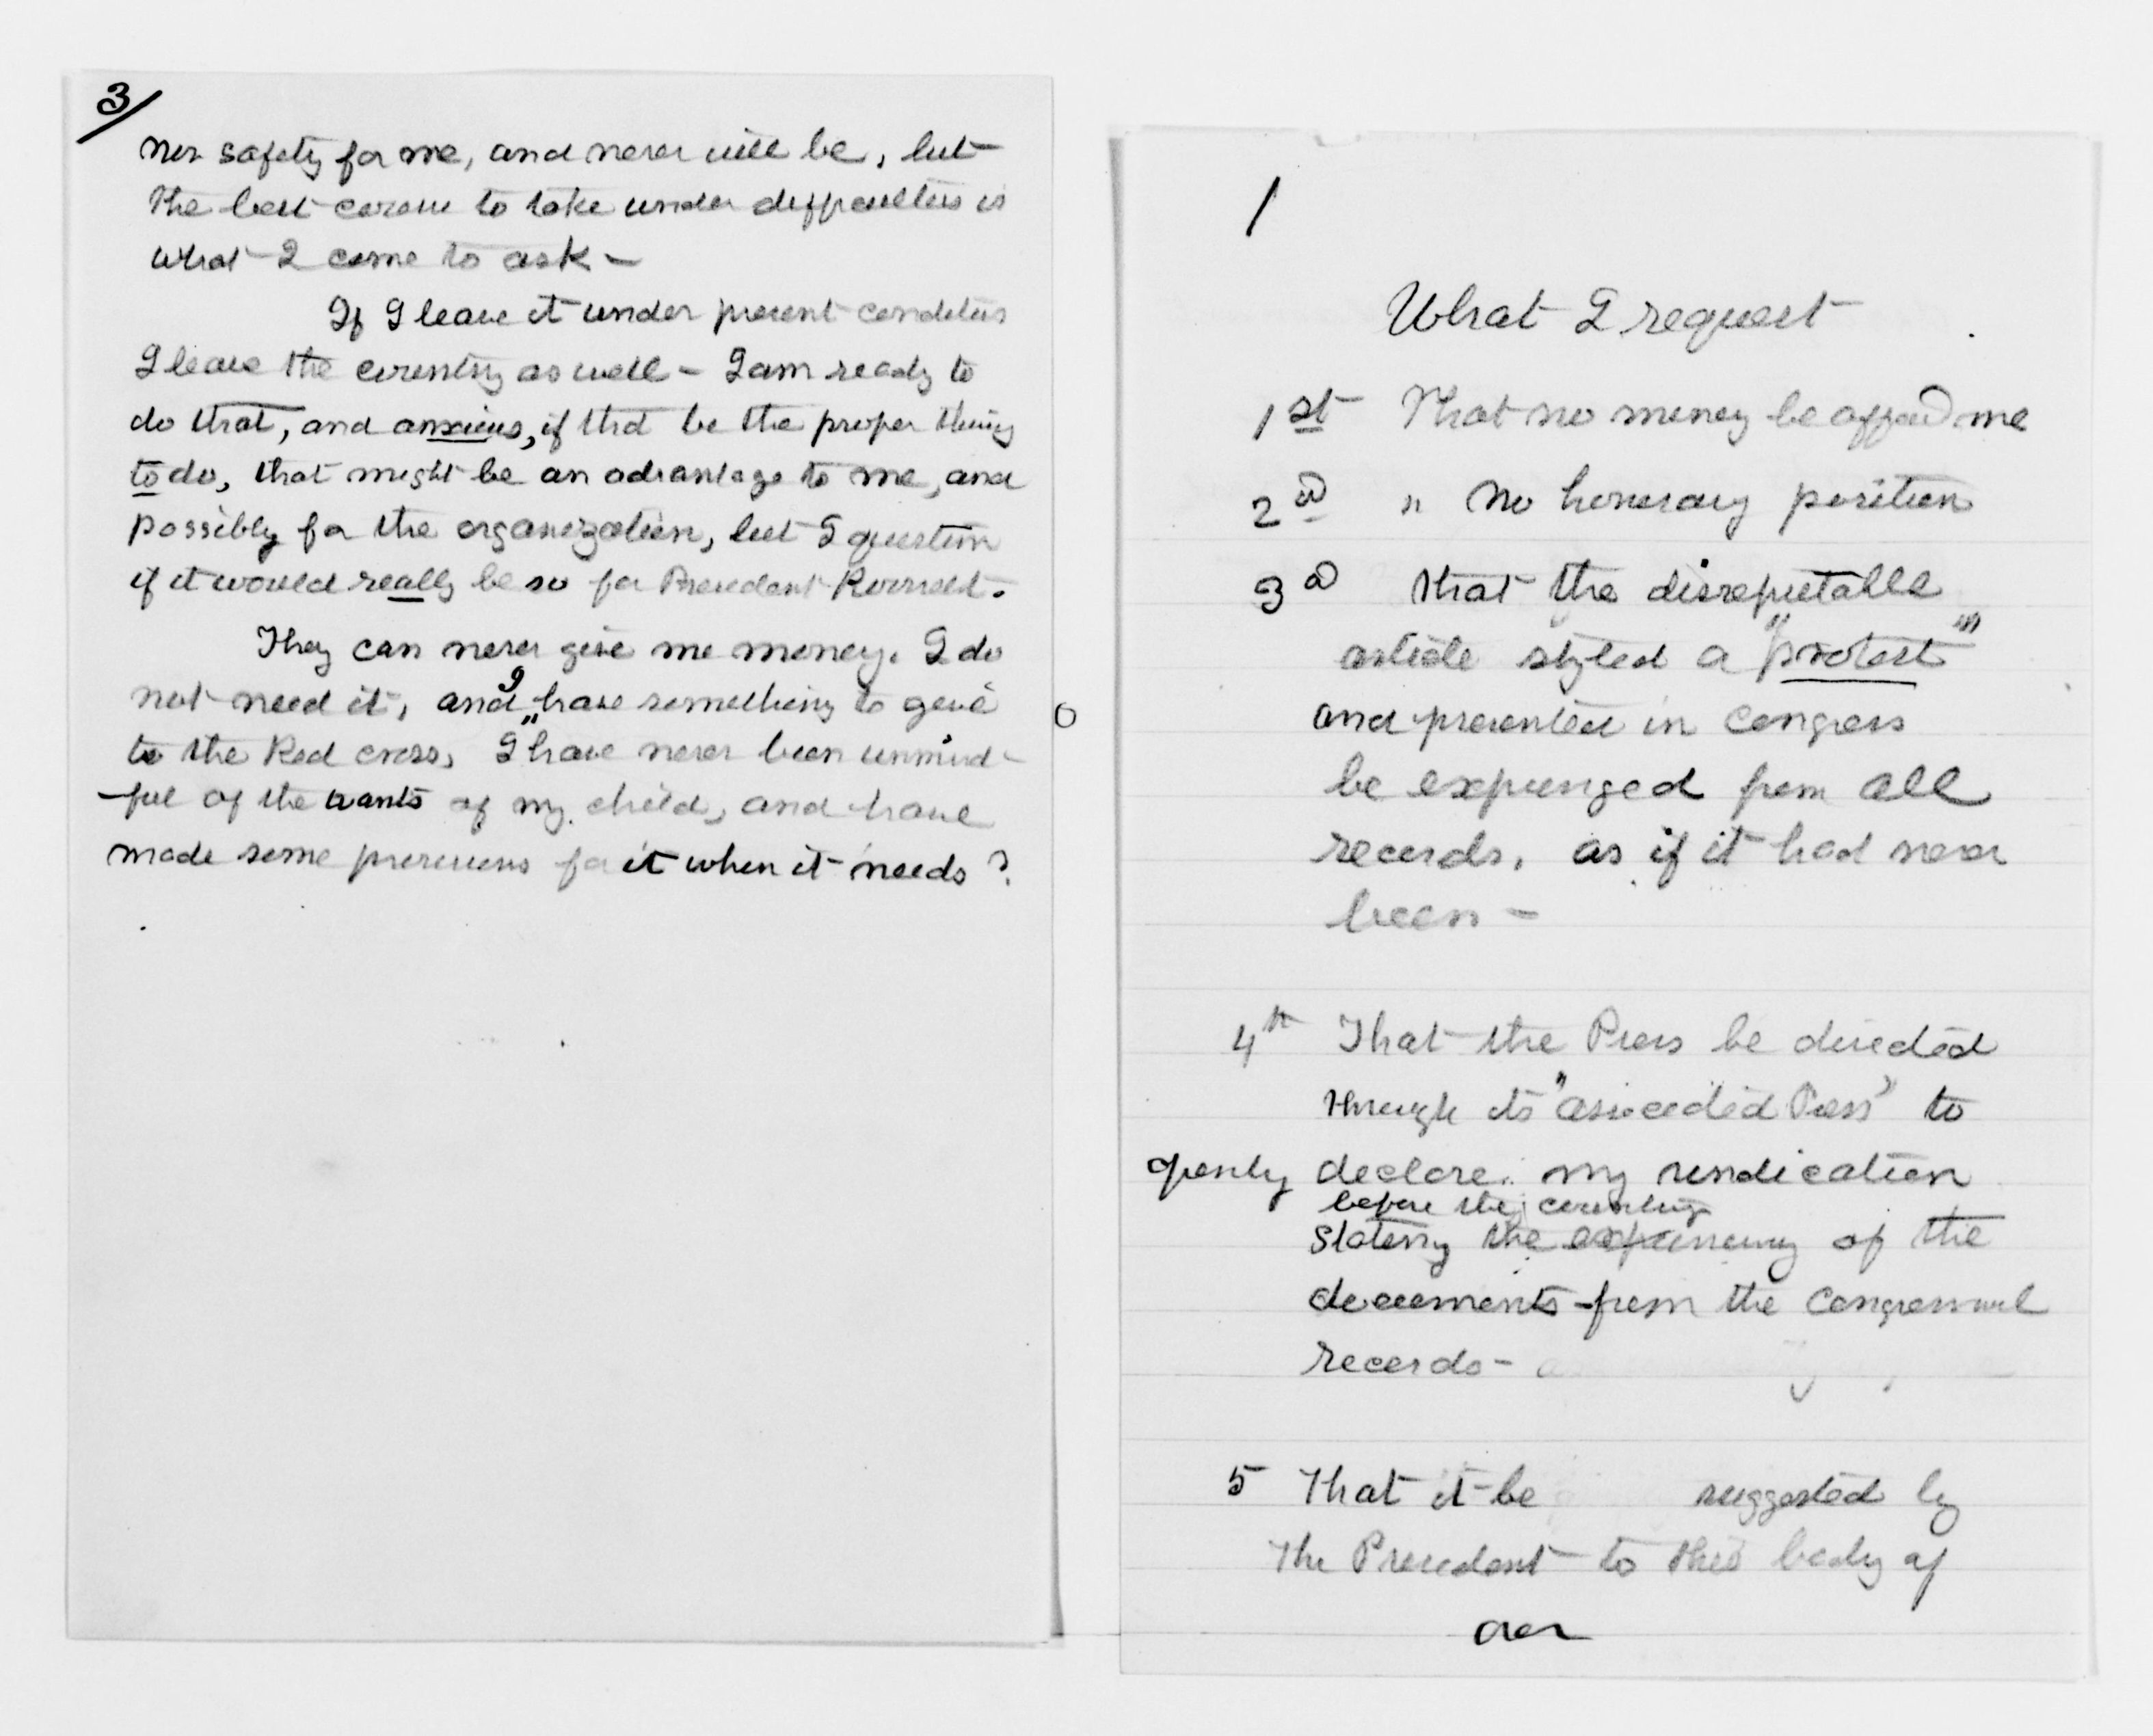 3/
nor safety for me, and never will be, but
the best course to take under difficulties is
what I come to ask —
If I leave it under present conditions
I leave the country as well – I am ready to
do that, and anxious, if that be the proper thing
to do, that might be an advantage to me, and
possibly for the organization, but I question
if it would really be so for President Roosevelt.
They can never give me money. I do
not need it, and I have something to give
to the Red cross, I have never been unmind-
-ful of the wants of my child, and have
made some provisions for it when it needs.
1
What I request
1st That no money be offered me
2d " no honorary position
3d that the disreputable
article styled a "protest"
and presented in Congress
be expunged from all
records, as if it had never
been –
4th That the Press be directed
through its "associated Press" to
openly declare my vindication
before the country
stating the expunging of the
documents from the Congressional
records –
5 That it be suggested by
the President to this body of
over